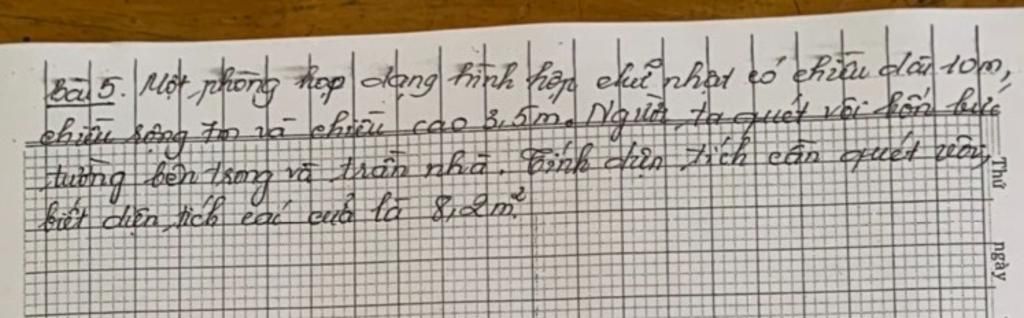 Bài 5. Một phòng họp dạng hình hộp chữ nhật có chiều dài 10m,
chiều rộng 7m và chiều cao 3,5m. Người ta quét vôi bốn bức
tường bên trong và trần nhà. Tính diện tích cần quét vôi,
biết diện tích các cửa là 8,2m².
Thứ
ngày